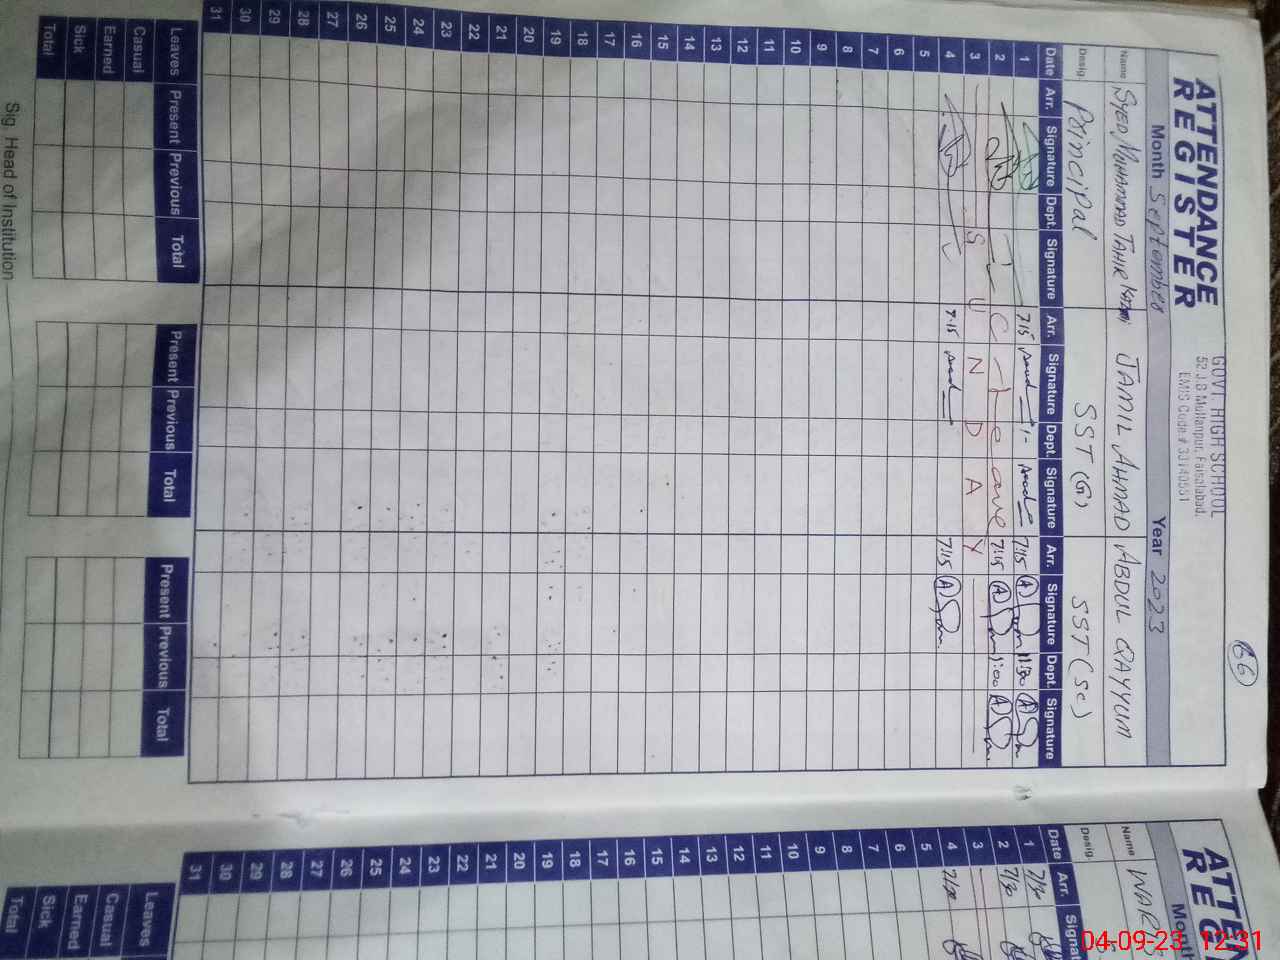 B6
ATTENDANCE
REGISTER
GOVT. HIGH SCHOOL
52 J.B Mullanpur, Faisalabad.
EMIS Code # 33140551
Month September Year 2023
Name SYED MUHAMMAD TAHIR KAZMI JAMIL AHMAD ABDUL QAYYUM
Desig. Principal SST (G) SST (SC)
Date Arr. Signature Dept. Signature Arr. Signature Dept. Signature Arr. Signature Dept. Signature
1 7:15 7:15 11:30
2 C-Leave 7:15 1:00
3 SUNDAY
4 7:15 7:15
5
6
7
8
9
10
11
12
13
14
15
16
17
18
19
20
21
22
23
24
25
26
27
28
29
30
31
Leaves Present Previous Total Present Previous Total Present Previous Total
Casual
Earned
Sick
Total
Sig. Head of Institution
ATTEN
REG
Month
Name WAR
Desig.
Date Arr. Signat
1 7/30
2 7/30
3
4 7/30
5
6
7
8
9
10
11
12
13
14
15
16
17
18
19
20
21
22
23
24
25
26
27
28
29
30
31
Leaves
Casual
Earned
Sick
Total
04-09-23 12:31